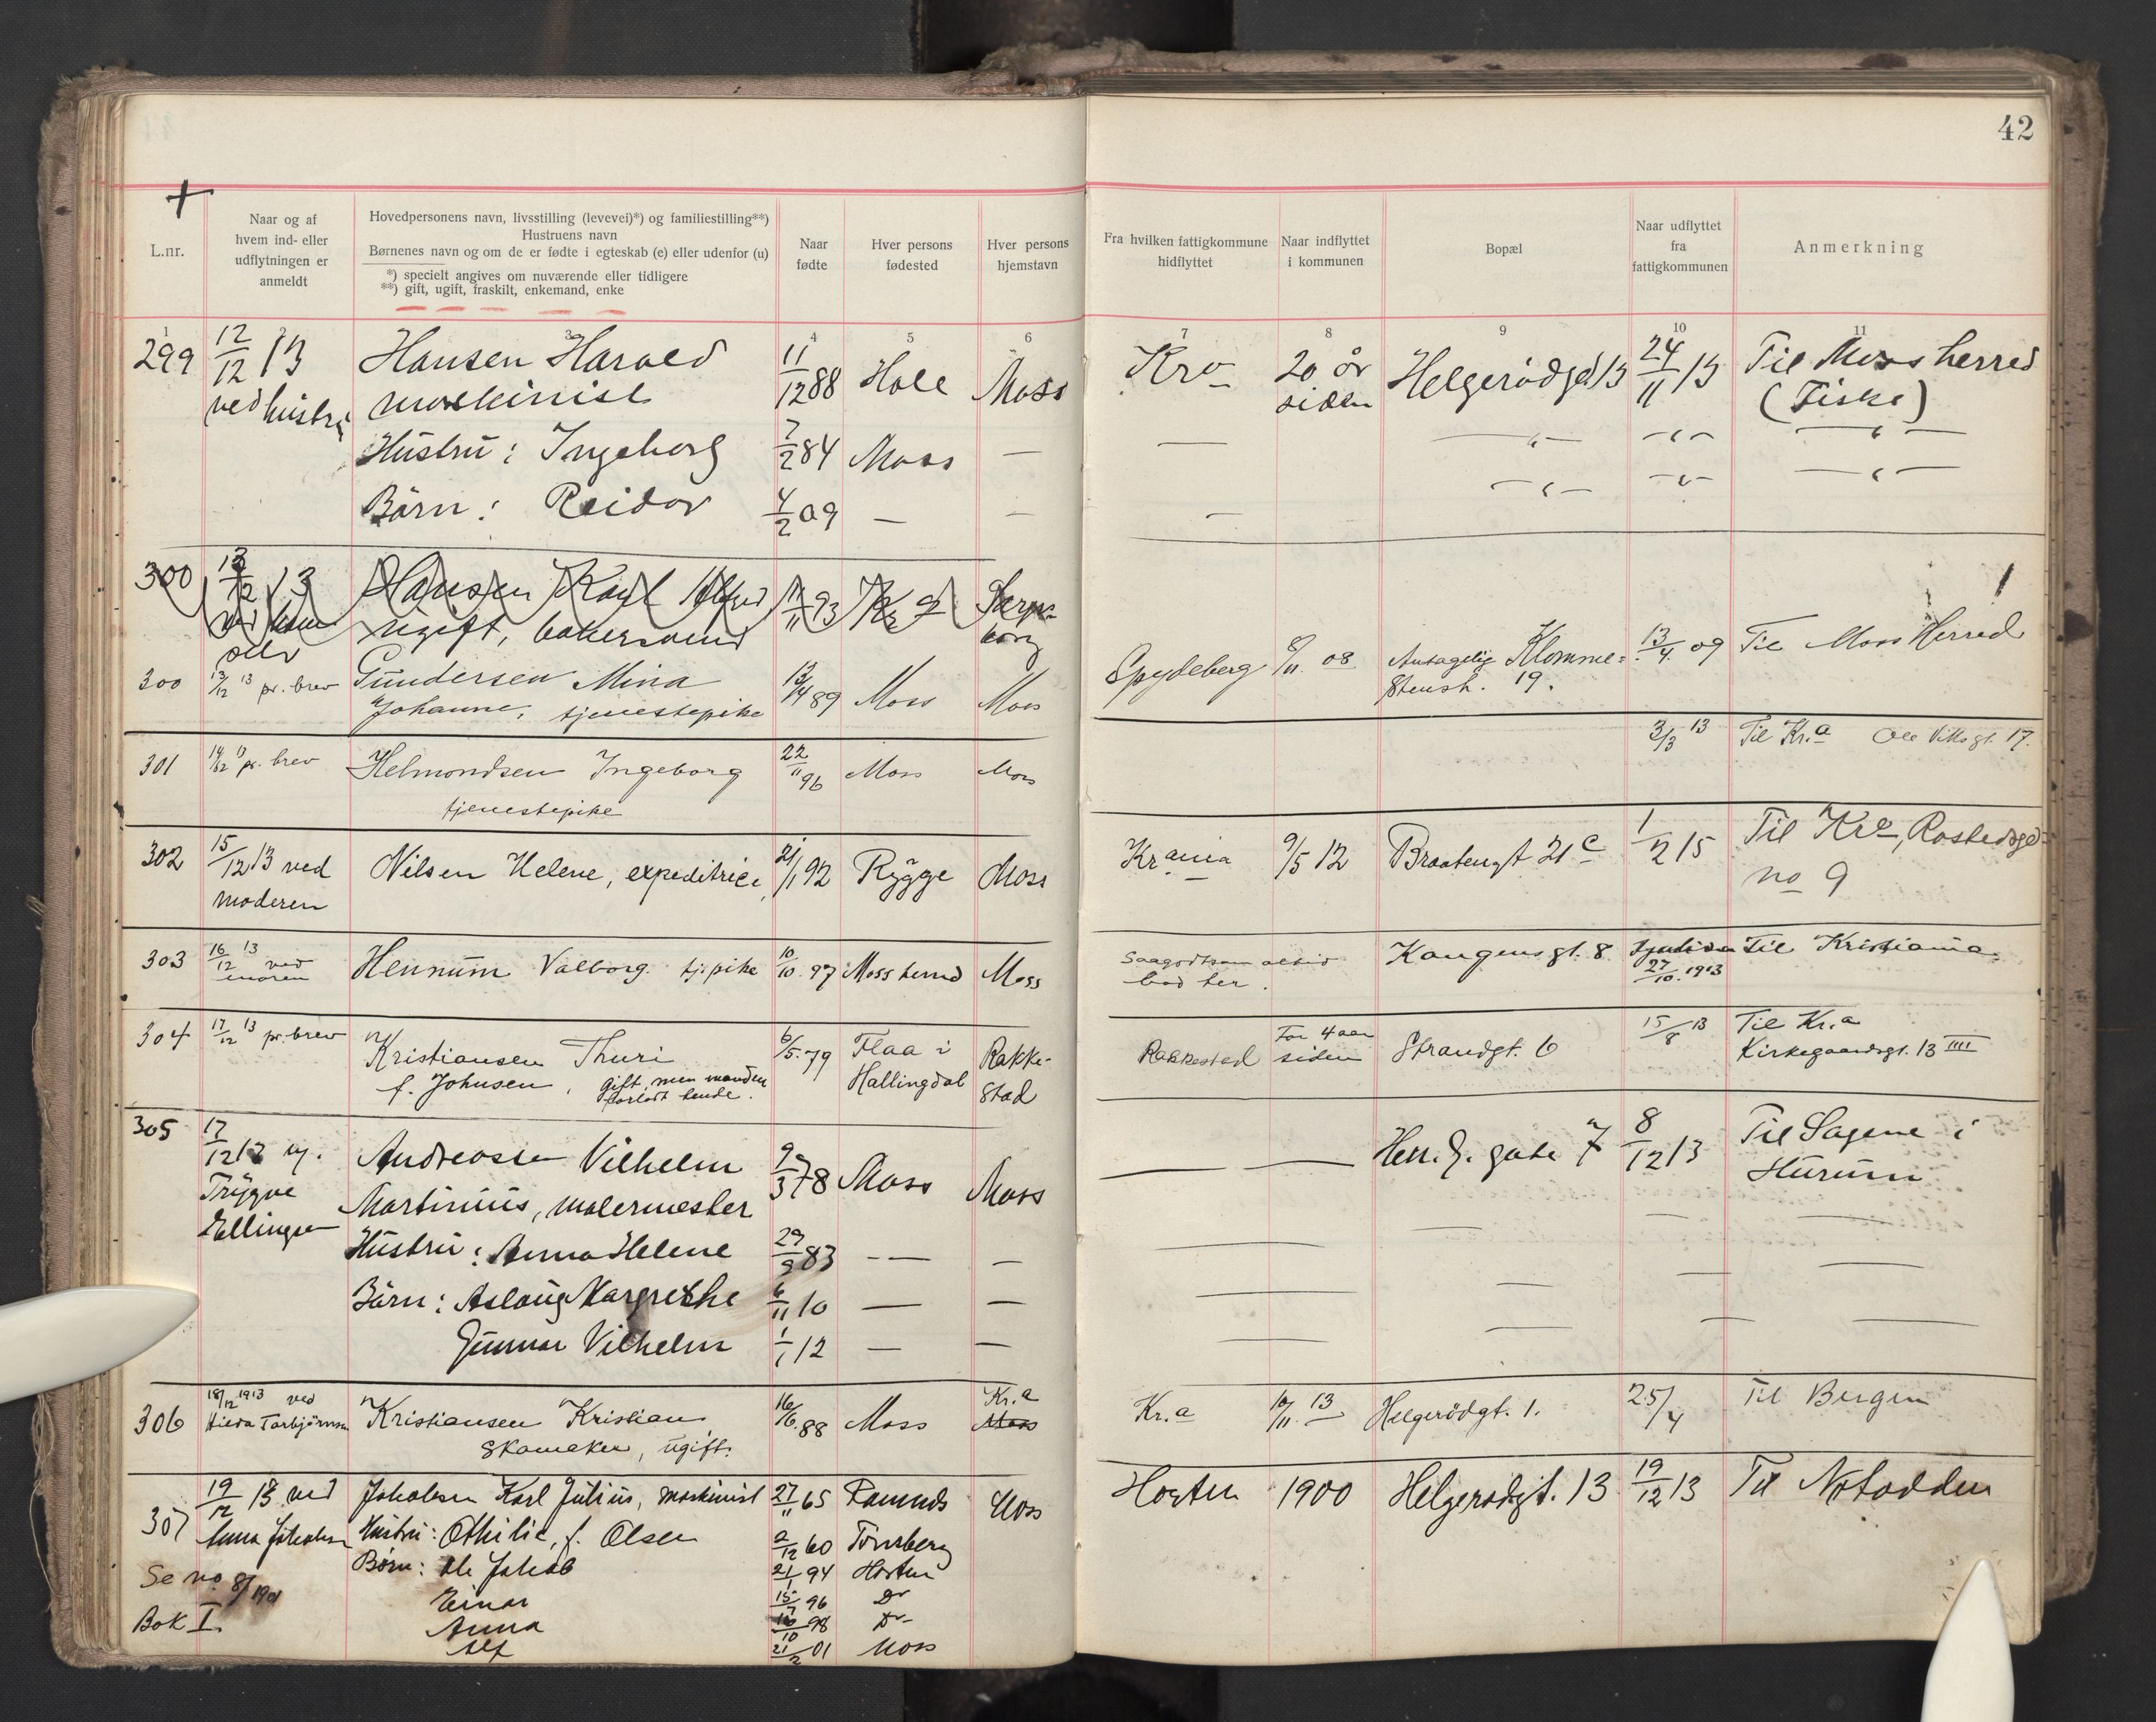 42
L.nr.
Naar og af
hvem ind- eller
udflytningen er
anmeldt
Hovedpersonens navn, livsstilling (levevei)*) og familiestilling**)
Hustruens navn
Børnenes navn og om de er fødte i egteskab (e) eller udenfor (u)
*) specielt angives om nuværende eller tidligere
**) gift, ugift, fraskilt, enkemand, enke
Naar
fødte
Hver persons
fødested
Hver persons
hjemstavn
Fra hvilken fattigkommune
hidflyttet
Naar indflyttet
i kommunen
Bopæl
Naar udflyttet
fra
fattigkommunen
Anmerkning
1 2 3 4 5 6 7 8 9 10 11
299 12/12 13 Hansen Harald 11/12 88 Hole Moss Kra 20 år Helgerödgd 13 24/11 13 Til Moss herred
ved hustru maskinist siden (Fiske)
Hustru: Ingeborg 7/2 84 Moss —
Börn: Reidar 4/2 09 — —
300 13/12 13 Hansen Karl 11/11 93 Kra Sarps-
ugift, bakersvend borg
selv
300 13/12 13 pr. brev Gundersen Mina 13/4 89 Moss Moss Spydeberg 8/11 08 Antagelig Klomme- 13/4 09 Til Moss Herred
Johanne, tjenestepike Stensh. 19.
301 14/12 13 pr. brev Helmondsen Ingeborg 22/11 96 Moss Moss 3/3 13 Til Kr.a Ole Viksgt. 17.
tjenestepike
302 15/12 13 ved Nilsen Helene, expeditrice, 21/1 92 Rygge Moss Krania 9/5 12 Braatengt 21c 1/2 15 Til Kra, Rostedsgd
moderen no 9
303 16/12 13 ved Hennum Valborg tj. pike 10/10 97 Moss herred Moss Saagodtsom altid Kongensgt. 8 Til Kristiania
moren bod her. 27/10 1913
304 17/12 13 pr. brev Kristiansen Thuri 6/5 79 Flaa i Rakke- Rakkestad For 4 aar Strandgt. 6 15/8 13 Til Kr.a
f. Johnsen, gift, men manden Hallingdal stad siden Kirkegaardsgt. 13 IIII
forlodt hende.
305 17/12 13 Andreassen Vilhelm 9/3 78 Moss Moss — — Hen. G. gate 7 8/12 13 Til Sagene i
Trygve Martinius, malermester Hurum
Ellingsen Hustru: Anna Helene 29/9 83 — —
Börn: Aslaug Margrethe 6/11 10 — —
Gunnar Vilhelm 1/1 12 — —
306 18/12 1913 ved Kristiansen Kristian 16/6 88 Moss Kr.a Kr.a 10/11 13 Helgerödgt. 1. 25/4 Til Bergen
Hilda Torbjörnsen skomaker, ugift. Moss
307 19/12 13 ved Jakobsen Karl Julius, maskinist 27/11 65 Ramnds Moss Horten 1900 Helgerødgt. 13 19/12 13 Til Notodden
Anna Jakobsen Hustru: Othilie, f. Olsen 2/12 60 Tönsberg
Börn: Ole Jakob 21/1 94 Horten
Se no 8/1901 Einar 15/7 96 Do
Bok I. Anna 10/10 98 Do
Alf 21/2 01 Moss